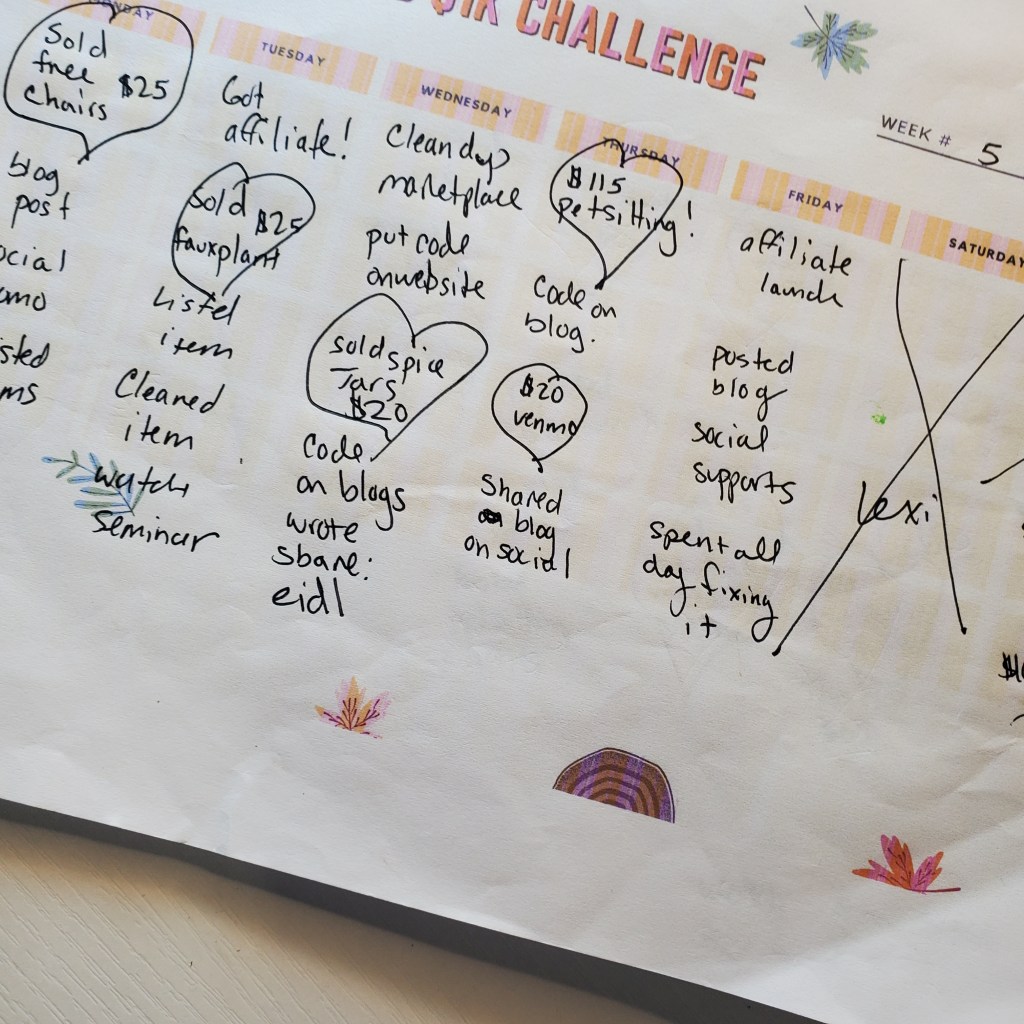 $1K CHALLENGE
WEEK # 5
MONDAY
Sold
free $25
chairs
blog
post
TUESDAY
Got
affiliate!
Sold $25
faux plant
listed
item
Cleaned
item
watch
seminar
WEDNESDAY
Cleaned up
marketplace
put code
on website
sold spice
Jars
$20
Code
on blogs
wrote
eidl
THURSDAY
$115
petsitting!
Code on
blog.
$20
venmo
Shared
blog
on social
FRIDAY
affiliate
launch
posted
blog
social
supports
spent all
day fixing
it
SATURDAY
Lexi